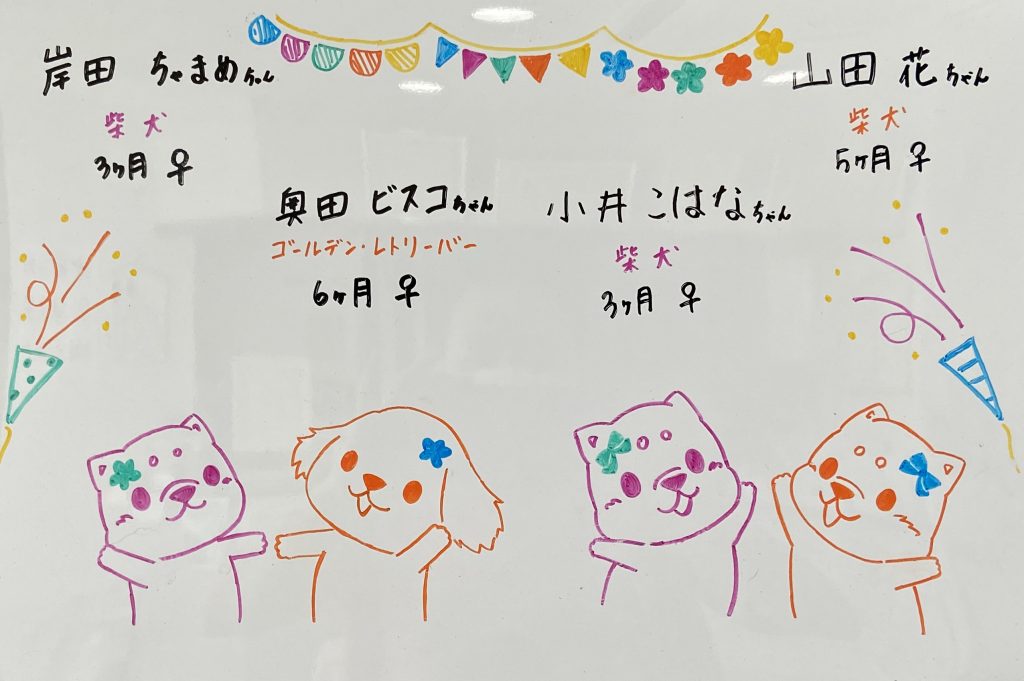 岸田 ちゃまめちゃん
柴犬
3ヶ月 ♀
奥田 ビスコちゃん
ゴールデン・レトリーバー
6ヶ月 ♀
小井 こはなちゃん
柴犬
3ヶ月 ♀
山田 花ちゃん
柴犬
5ヶ月 ♀